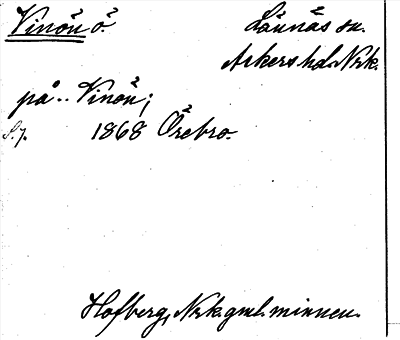 Vinön ö. Lännäs sn.
Askers hd. Nrk.
på .. Vinön;
S. 7. 1868 Örebro.
Hofberg, Nrk gml. minnen.